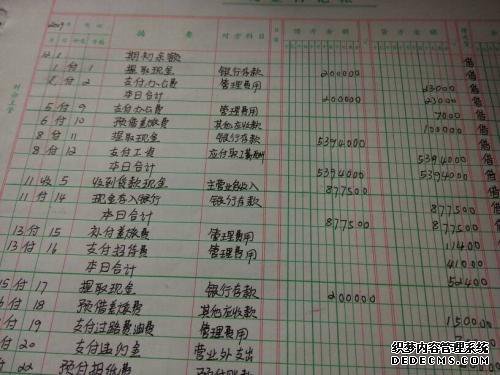 2009年 凭证 摘要 对方科目 借方金额 贷方金额
12 1 期初余额 借
1 付 1 提取现金 银行存款 200000 借
2 付 2 支付办公费 管理费用 23000 借
本日合计 200000 23000 借
5 付 9 支付办公费 管理费用 7000 借
6 付 10 预借差旅费 其他应收款 100000 借
8 付 11 提取现金 银行存款 5394000 借
8 付 12 支付工资 应付职工薪酬 5394000 借
本日合计 5394000 5394000 借
11 收 5 收到货款现金 主营业务收入 877500 借
11 付 14 现金存入银行 银行存款 877500 借
本日合计 877500 877500 借
13 付 15 补付差旅费 管理费用 11400 借
13 付 16 支付招待费 管理费用 41000 借
本日合计 52400 借
15 付 17 提取现金 银行存款 200000 借
付 18 预借差旅费 其他应收款 150000
付 19 支付过路费油费 管理费用
付 20 支付违约金 营业外支出
付 22
织梦内容管理系统
DEDECMS.COM